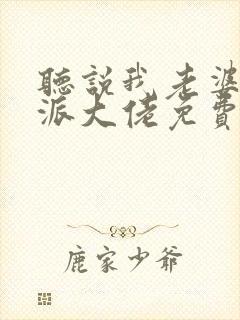 聽說我老婆
派大佬免費
鹿家少爺